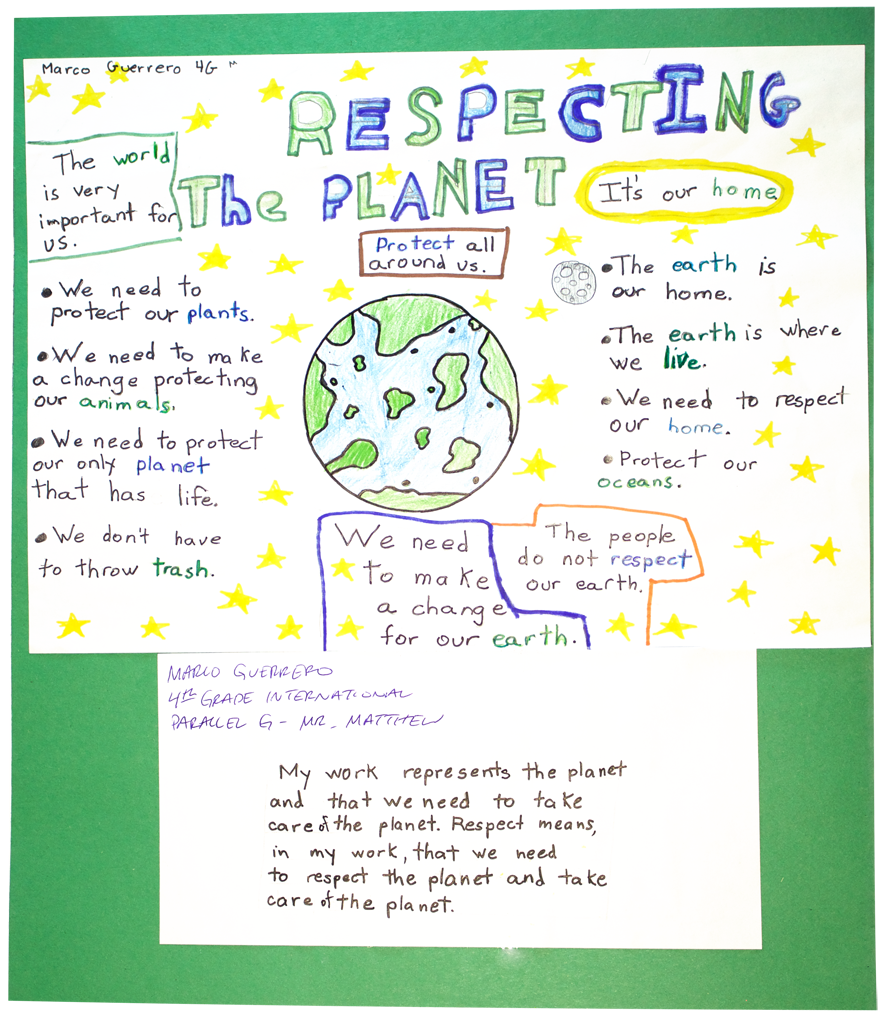 Marco Guerrero 4G
RESPECTING
The PLANET
The world
is very
important for
us.
It's our home
Protect all
around us.
• We need to
protect our plants.
• We need to make
a change protecting
our animals.
• We need to protect
our only planet
that has life.
• We don't have
to throw trash.
• The earth is
our home.
• The earth is where
we live.
• We need to respect
our home.
• Protect our
oceans.
We need
to make
a change
for our earth.
The people
do not respect
our earth.
MARCO GUERRERO
4TH GRADE INTERNATIONAL
PARALLEL G - MR. MATTHEW
My work represents the planet
and that we need to take
care of the planet. Respect means,
in my work, that we need
to respect the planet and take
care of the planet.